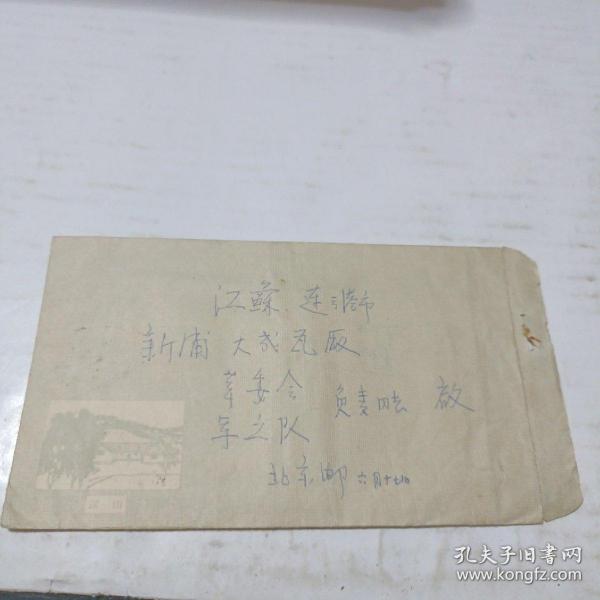 江蘇 连云港市
新浦 大成瓦厰
革委会
军宣队
负责同志 啟
北京邮 六月十七日
孔夫子旧书网
www.kongfz.com